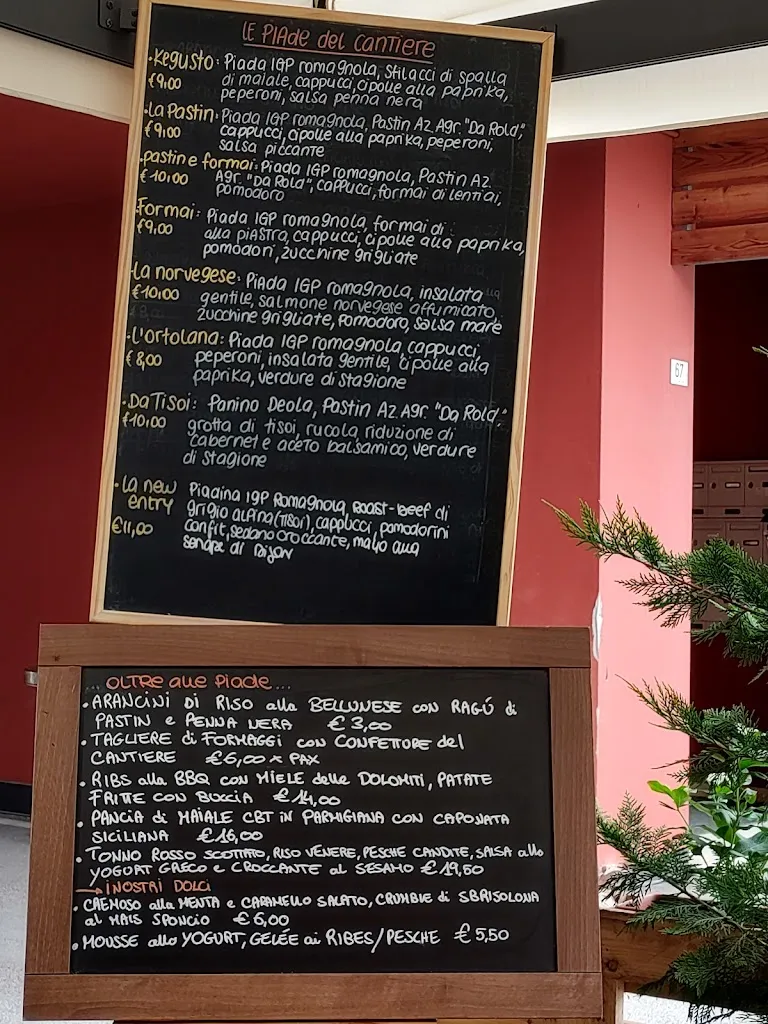 LE PIADE del CANTIERE
·KeGusto: Piada IGP romagnola, Stilacci di spalla
€9,00 di maiale, cappucci, cipolle alla paprika,
peperoni, salsa penna nera
·La Pastin: Piada IGP romagnola, Pastin Az. Agr. "Da Rold",
€9,00 cappucci, cipolle alla paprika, peperoni,
salsa piccante
·pastin e formai: Piada IGP romagnola, Pastin Az.
€10,00 Agr. "Da Rold", cappucci, formai di lentiai,
pomodoro
Formai: Piada IGP romagnola, formai di
€9,00 alla piastra, cappucci, cipolle alla paprika,
pomodori, zucchine grigliate
·La norvegese: Piada IGP romagnola, insalata
€10,00 gentile, salmone norvegese affumicato,
zucchine grigliate, pomodoro, salsa mare
·L'ortolana: Piada IGP romagnola, cappucci,
€8,00 peperoni, insalata gentile, cipolle alla
paprika, verdure di stagione
·DaTisoi: Panino Deola, Pastin Az. Agr. "Da Rold",
€10,00 grotta di tisoi, rucola, riduzione di
cabernet e aceto balsamico, verdure
di stagione
·La new Piadina IGP Romagnola, Roast-beef di
entry grigio alpina (Tisoi), cappucci, pomodorini
€11,00 confit, sedano croccante, maio alla
senape di Dijon
... OLTRE alle Piade...
·ARANCINI DI RISO alla BELLUNESE con RAGÚ di
PASTIN e PENNA NERA €3,00
·TAGLIERE di FORMAGGI con CONFETTURE del
CANTIERE €6,00 x PAX
·RIBS alla BBQ con MIELE delle DOLOMITI, PATATE
FRITTE CON BUCCIA €14,00
·PANCIA di MAIALE CBT IN PARMIGIANA CON CAPONATA
SICILIANA €16,00
·TONNO ROSSO SCOTTATO, RISO VENERE, PESCHE CANDITE, SALSA allo
YOGURT GRECO e CROCCANTE al SESAMO €19,50
→ I NOSTRI DOLCI
·CREMOSO alla MENTA e CARAMELLO SALATO, CRUMBLE di SBRISOLONA
al MAIS SPONCIO €6,00
·MOUSSE allo YOGURT, GELÉE ai RIBES/PESCHE €5,50
67